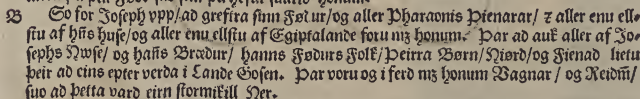 B So for Joseph vpp/ ad greftra sinn Fødur/ og aller Pharaonis Þienarar/ ⁊ aller enu ell-
stu af hn̄s huse/ og aller enu ellstu af Egiptalande foru mz honum. Þar ad auk aller af Jo-
sephs Hwse/ og hans Brædur/ hanns Fødurs Folk/ Þeirra Børn/ Niørd/ og Fienad lietu
þeir ad eins epter verda i Lande Gosen. Þar voru og i ferd mz honum Vagnar/ og Reidm̄/
suo ad þetta vard eirn stormikill Her.